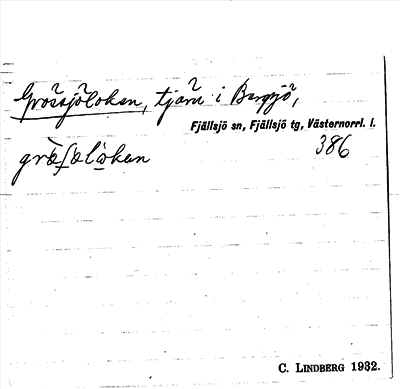 Grossjöloken, tjärn i Bergsjö,
Fjällsjö sn, Fjällsjö tg, Västernorrl. l.
386
C. LINDBERG 1932.